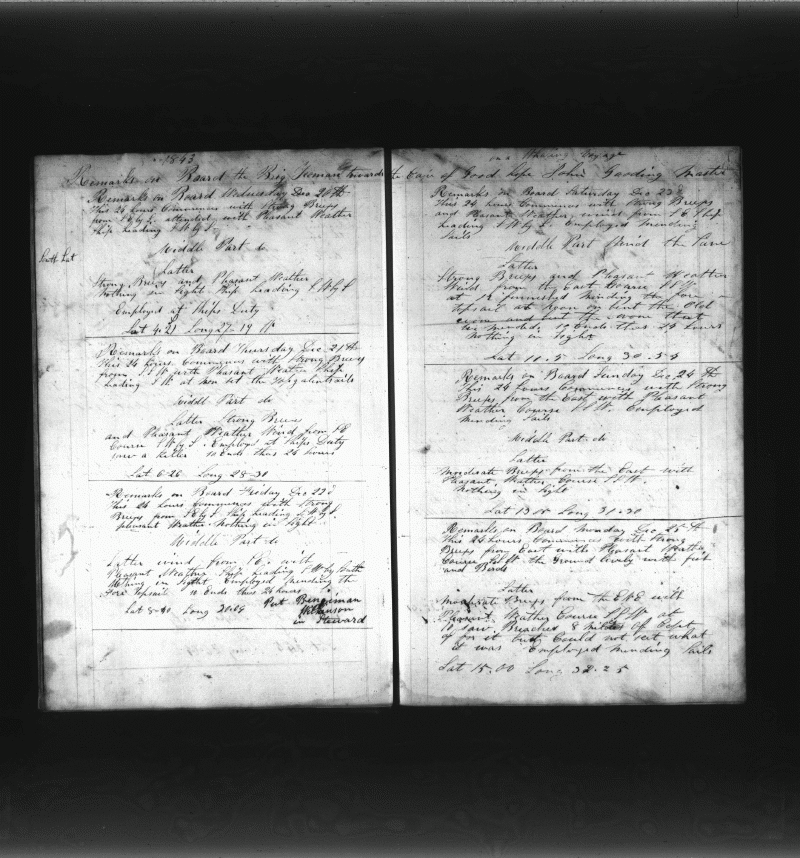 1843
Remarks on Board the Brig towards
Remarks on Board Wednesday Dec 20th
This 24 hours Commences with Strong Breeps
from S E by E attended with Pleasant Weather
Ship heading S W by S
Middle Part do
South Lat
Latter
Strong Breeps and Pleasant Weather
Nothing in Sight Ship heading S W by S
Employed at Ships Duty
Lat 4-21 Long 27-19 W
Remarks on Board Thursday Dec 21th
This 24 hours Commences with Strong Breeps
from with Pleasant Weather Ship
heading S W at set the
Middl Part do
Latter Strong Breeps
and Pleasant Weather Wind from S E
Course S W by S Employed at Ships Duty
saw a Ends this 24 hours
Lat 6-26 Long 28-30
Remarks on Board Friday Dec 22d
This 24 hours Commences with Strong
Breeps from S E by E Ship heading S W by S
pleasant Weather Nothing in Sight
Middle Part do
Latter wind from S E with
Pleasant Weather Ship heading S W by South
Nothing in Sight Employed mending the
Fore Topsail so Ends this 24 hours
Lat 8-40 Long 29-09 Put Bengeman
Wilkinson
in Steward
on a Whaling Voyage
to Cape of Good hope John Gooding Master
Remarks on Board Saturday Dec 23d
This 24 hours Commences with Strong Breeps
and Pleasant Weather wind from S E Ship
heading S W by S Employed mending
Sails
Middle Part Wind the Same
Latter
Strong Breeps and Pleasant Weather
Wind from the East Course S S W
at 10 finnished mending the fore
topsail at noon on bent the Old
one and bent the one that
was mended so Ends this 24 hours
Nothing in Sight
Lat 11-5 Long 30-55
Remarks on Board Sunday Dec 24th
This 24 hours Commences with Strong
Breeps from the East with Pleasant
Weather Course S S W Employed
mending Sails
Middle Part do
Latter
Moderate Breeps from the East with
Pleasant Weather Course S S W
Nothing in Sight
Lat 13 Long 31-30
Remarks on Board Monday Dec 25th
This 24 hours Commences with Strong
Breeps from East with Pleasant Weather
Course S S W the Ground lively with fish
and Birds
Latter
Moderate Breeps from the E S E with
Pleasant Weather Course S S W at
saw Breaches 8 miles of Kept
of for it but Could not see what
it was Employed mending Sails
Lat 15-00 Long 32-25